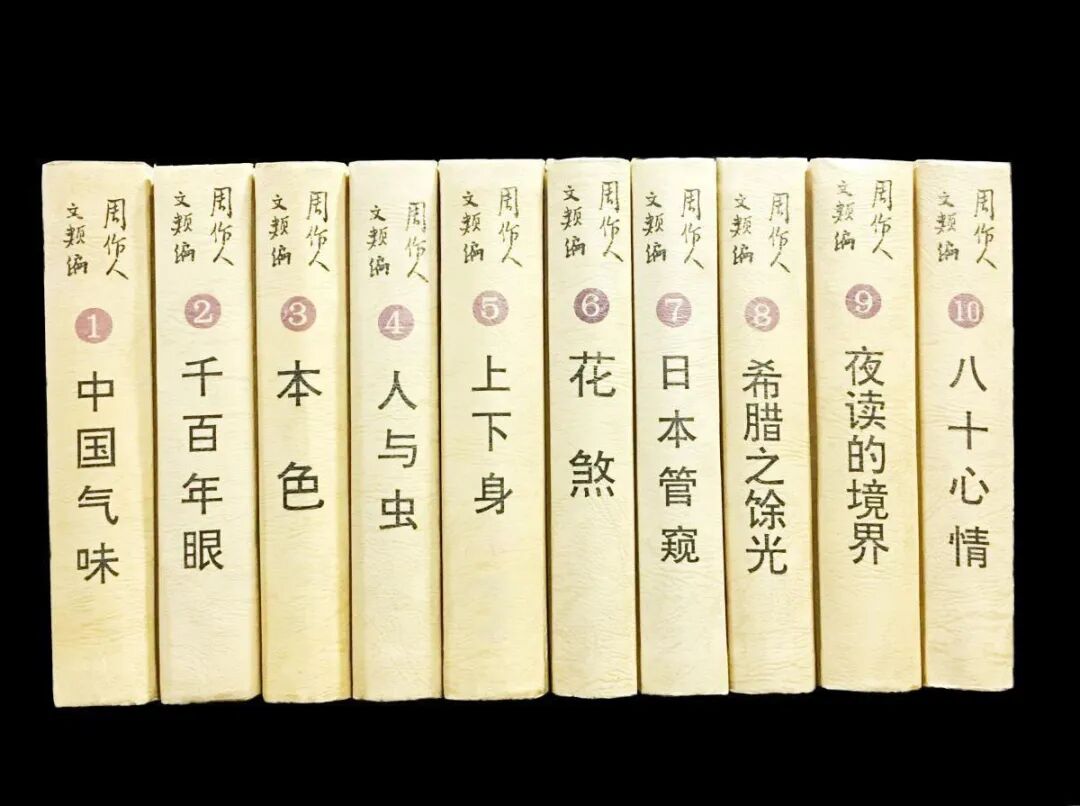 周作人
文类编
1
中国气味
周作人
文类编
2
千百年眼
周作人
文类编
3
本色
周作人
文类编
4
人与虫
周作人
文类编
5
上下身
周作人
文类编
6
花煞
周作人
文类编
7
日本管窥
周作人
文类编
8
希腊之馀光
周作人
文类编
9
夜读的境界
周作人
文类编
10
八十心情